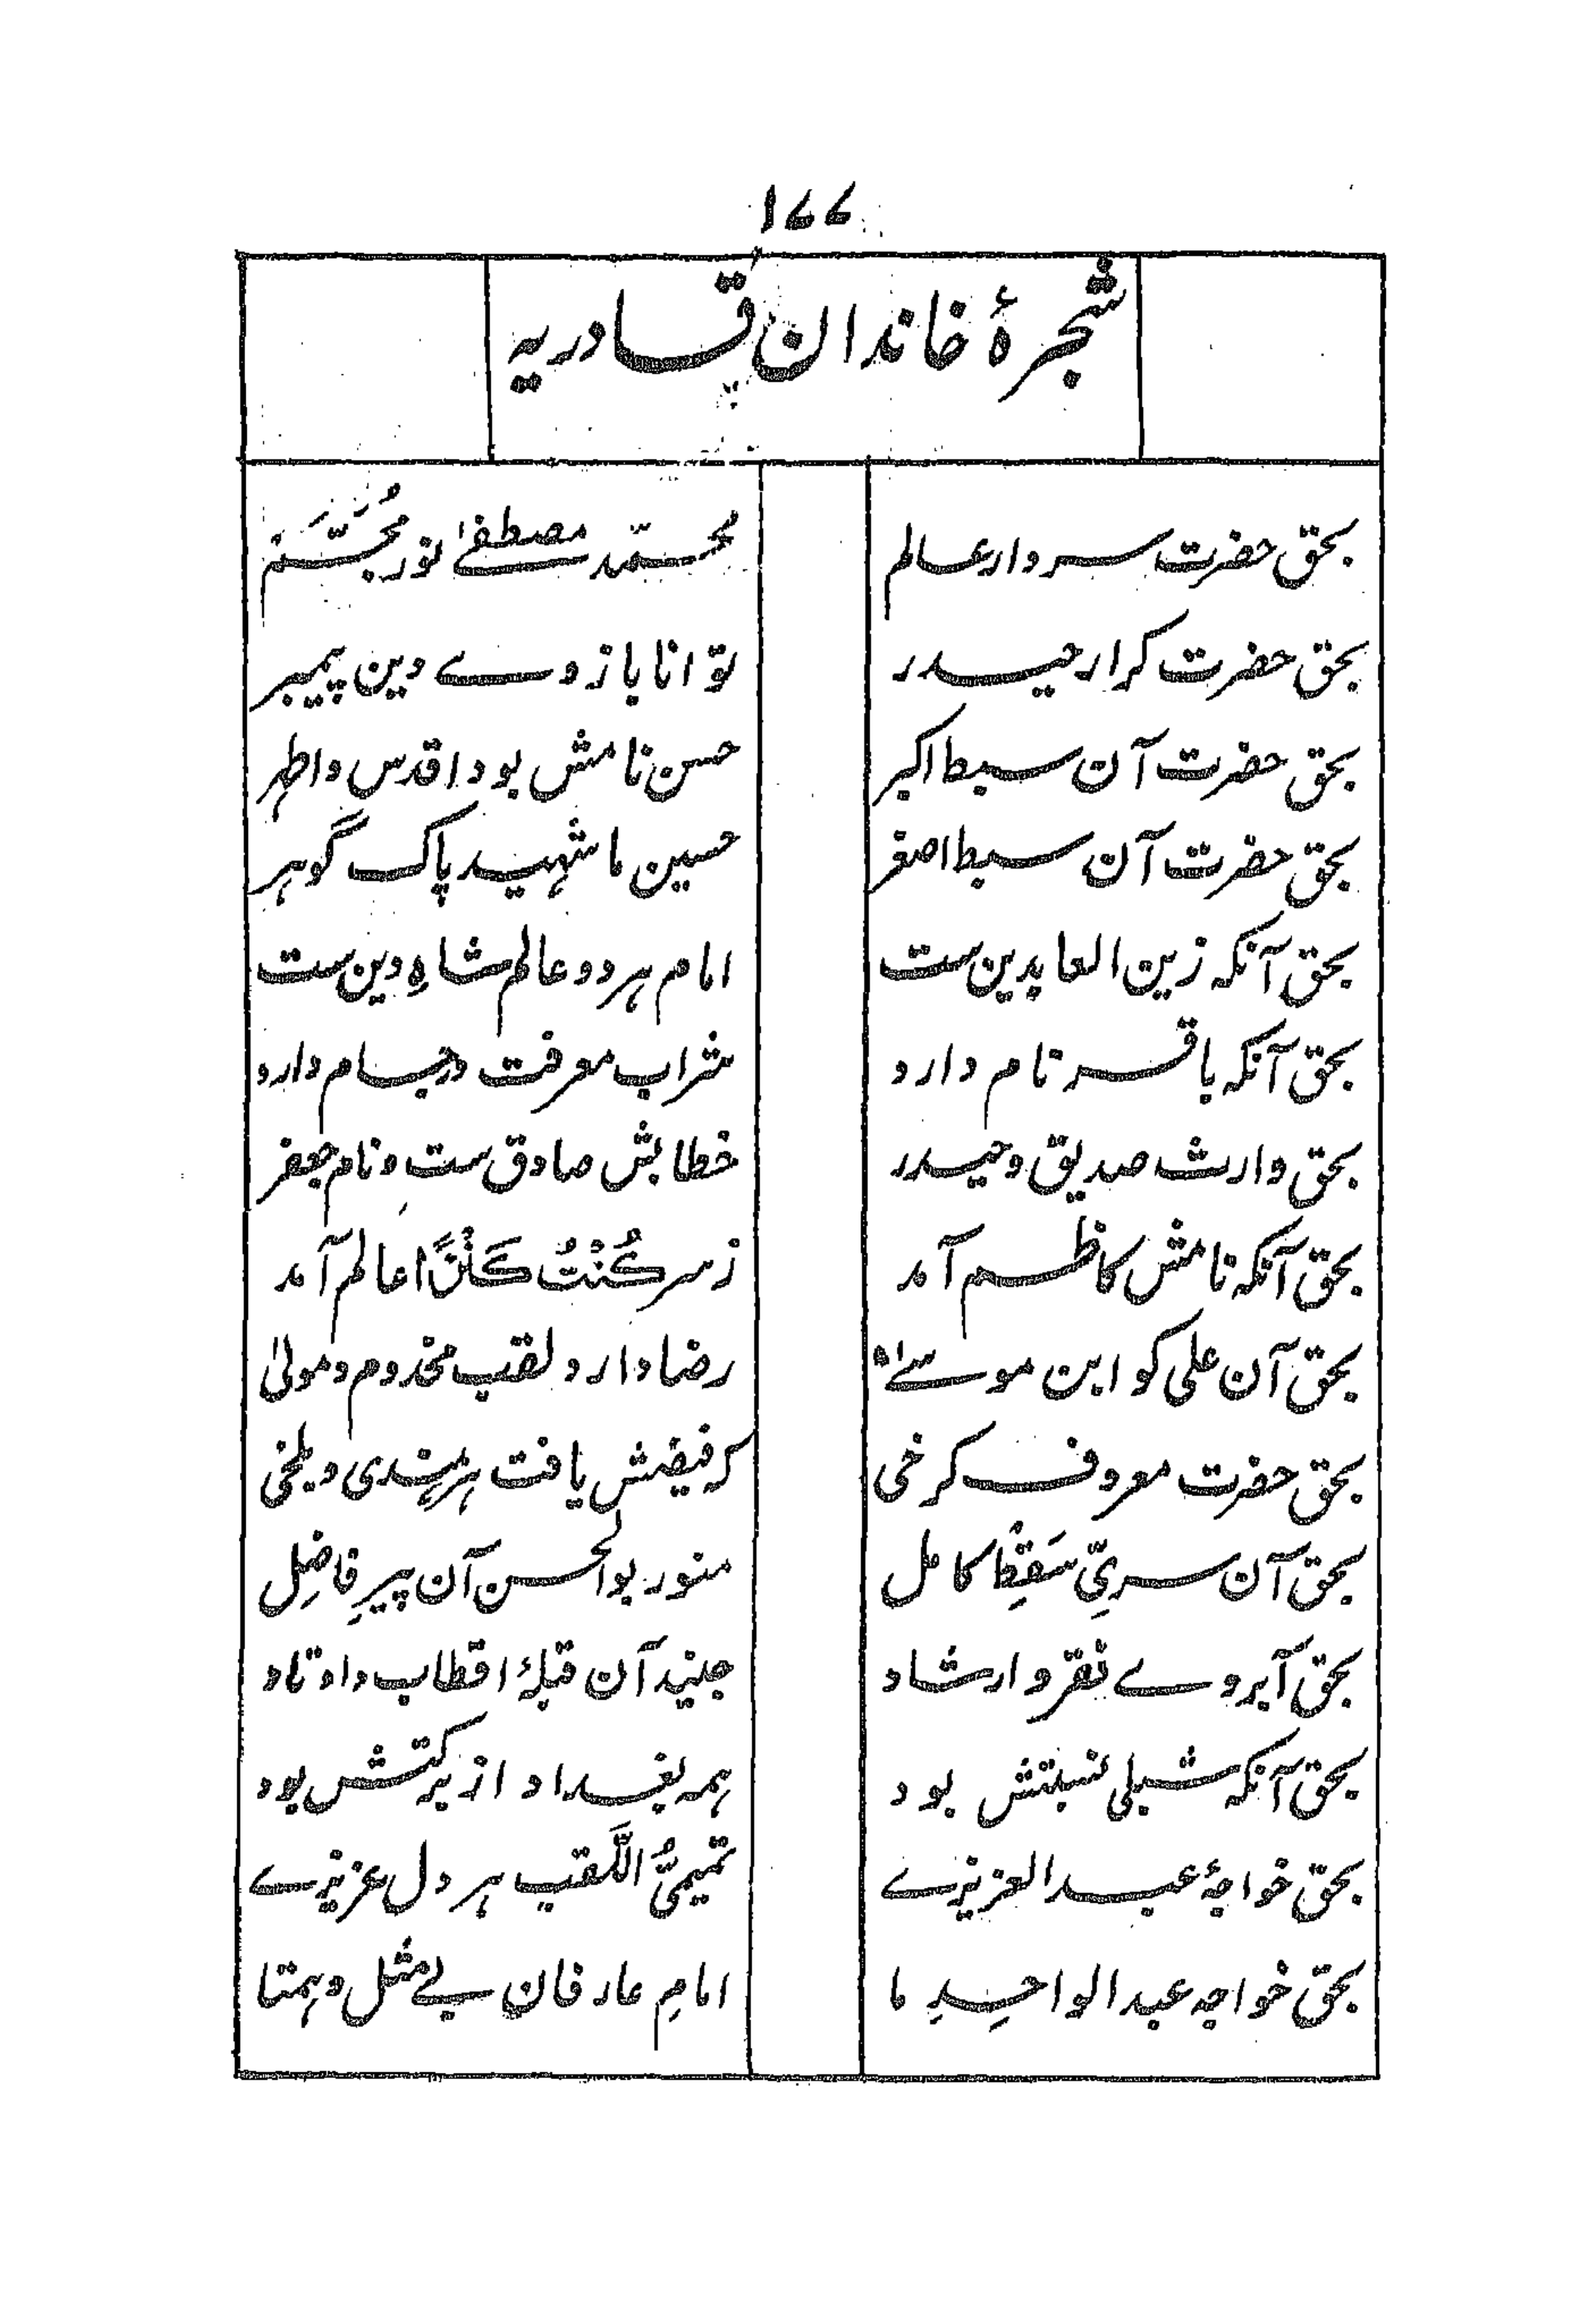 ۱۷۷
شجرۂ خاندان قادریہ
بحق حضرت سردار عالم محمّد مصطفےٰ نور مُجَسَّم
بحق حضرت کرار حیدر توانا بازوے دین پیمبر
بحق حضرت آن سبط اکبر حسن نامش بود اقدس واطہر
بحق حضرت آن سبط اصغر حسین ما شہید پاک گوہر
بحق آنکہ زین العابدین ست امام ہر دو عالم شاہِ دین ست
بحق آنکہ باقر نام دارد شراب معرفت در جام دارد
بحق وارث صدیق وحیدر خطابش صادق ست ونام جعفر
بحق آنکہ نامش کاظم آمد ز سر کُنْتُ کَنْزًا عالم آمد
بحق آن علی کو ابن موسےٰ رضا دارد لقب مخدوم ومولیٰ
بحق حضرت معروف کرخی کہ فیضش یافت ہر ہندی وبلخی
بحق آن سریِّ سَقِطْ کامل منور بوالحسن آن پیرِ فاضِل
بحق آبروے فقر وارشاد جنید آن قبلۂ اقطاب واوتاد
بحق آنکہ شبلی نسبتش بود ہمہ بغداد از برکتش بود
بحق خواجۂ عبد العزیزے تمیمیُّ اللَّقب ہر دل عزیزے
بحق خواجہ عبد الواحِدِ ما امامِ عارفان بے مثل وہمتا